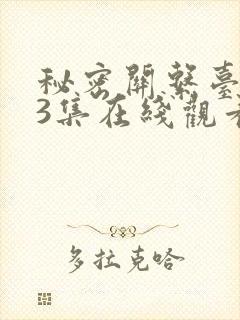 秘密關繫臺
3集在綫觀看
多拉克哈